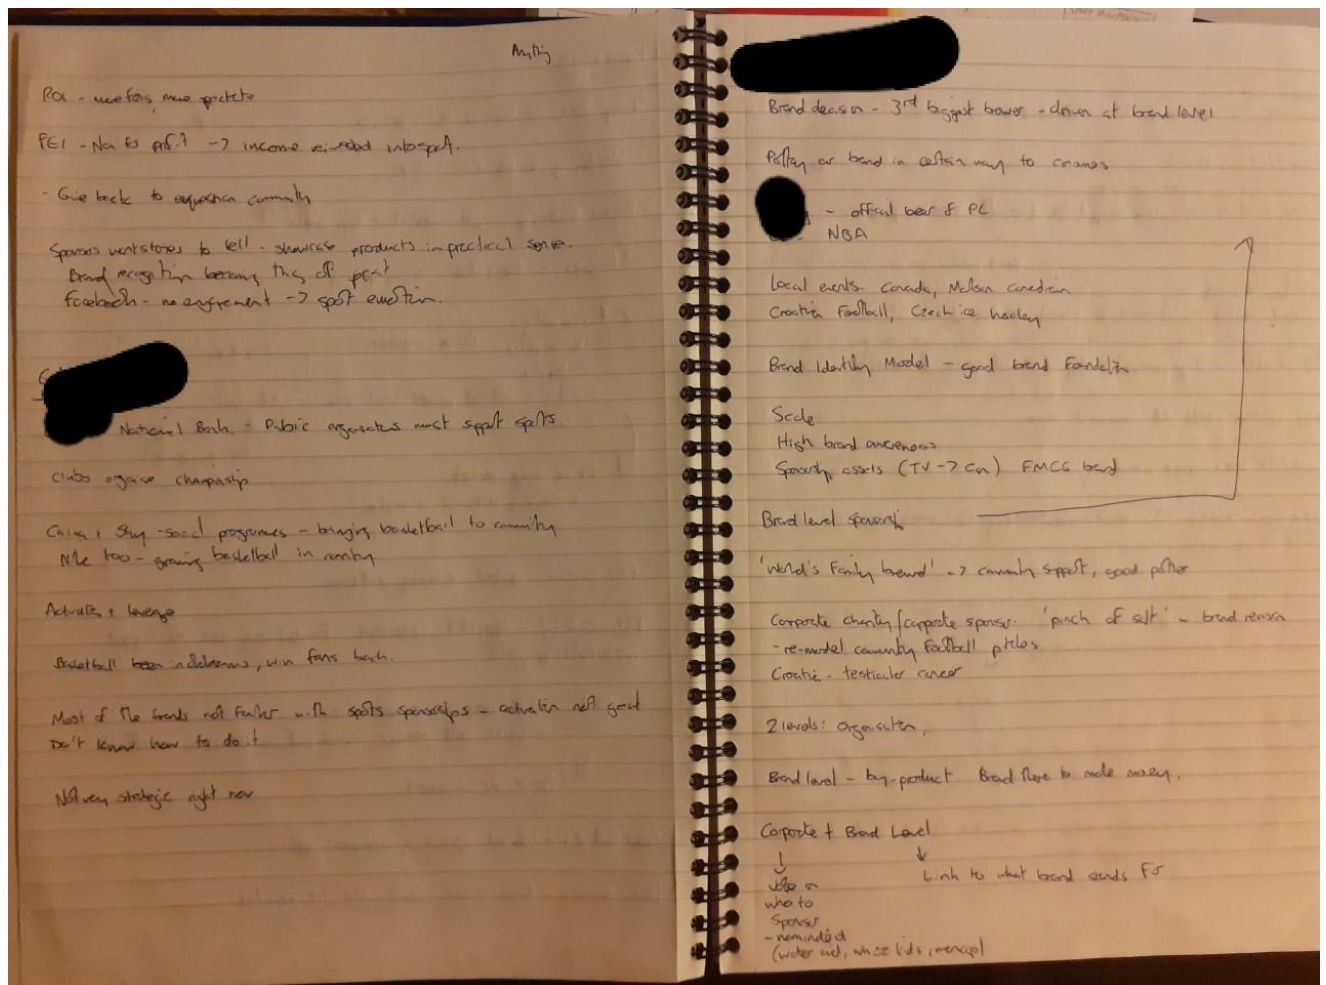 ROI - more fans, more
FEI - Not for profit -> income reinvested into sport.
- Give back to equestrian community
Sponsors want stories to tell - showcase products in practical sense.
Brand recognition becoming thing of past
Facebook - no engagement -> sport emotion.
National Bank - Public organisations must support sports
Clubs organise championship
+ Sky - social programmes - bringing basketball to community
Nike too - growing basketball in country
Activate + leverage
Basketball been in, win fans back.
Most of the brands not familiar with sports sponsorships - activation not great
Don't know how to do it
Not very strategic right now
Brand decision - 3rd biggest brewer - driven at brand level
Portray our brand in certain way to
- official beer of PL
NBA
Local events - Canada, Molson Canadian
Croatia Football, Czech ice hockey
Brand Identity Model - good brand foundation
Scale
High brand awareness
Sponsorship assets (TV -> Can) FMCG brand
Brand level sponsorship
'World's Family brewer' -> community support, good partner
Corporate charity/corporate sponsor. 'pinch of salt' - brand reason
- re-model community football pitches
Croatia - testicular cancer
2 levels: organisation,
Brand level - by-product. Brand there to make money.
Corporate + Brand Level
Link to what brand stands for
vote on
who to
sponsor
- nominated
(water aid, kids, mencap)